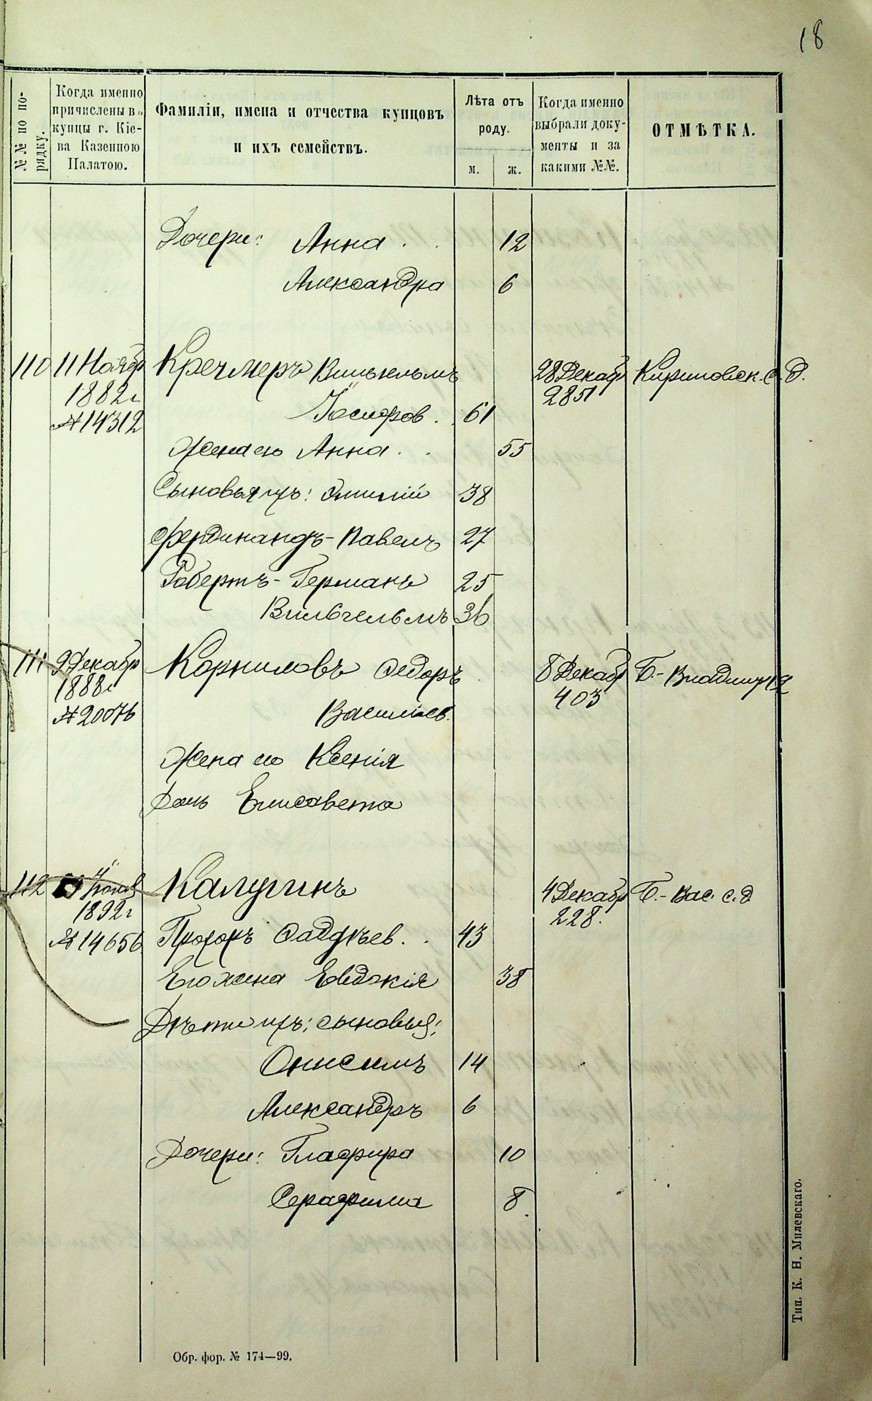 18
№№ по по-
рядку.
Когда именно
причислены в
купцы г. Кіе-
ва Казенною
Палатою.
Фамиліи, имена и отчества купцовъ
и ихъ семействъ.
Лѣта отъ
роду.
м. ж.
Когда именно
выбрали доку-
менты и за
какими №№.
ОТМѢТКА.
Дочери: Анна 12
Александра 6
110 11 Ноябр Кречмеръ Вильгельмъ 28 Декабр
1882 г 2851
№ 14312 61
Жена его Анна 55
Сыновья ихъ: Эмилій 38
Фердинандъ-Павелъ 27
Робертъ-Германъ 25
Вильгельмъ 36
111 9 Декабр Корниловъ Федоръ 8 Декабр Б.-Владимир
1888 г 403
№ 20076 Васильев.
Жена его Ксенія
Дочь Елисавета
112 Калугинъ 4 Декабр Б.-Вас. с. д
1892 г 228.
№ 14656 43
Его жена Евдокія 38
Дѣти ихъ: сыновья:
Онисимъ 14
Александръ 6
Дочери: Глафира 10
Серафима 8
Обр. фор. № 174—99.
Тип. К. Н. Милевскаго.